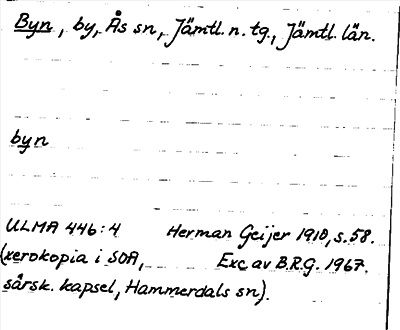 Byn, by, Ås sn, Jämtl. n. tg., Jämtl. län.
byn
ULMA 446:4 Herman Geijer 1910, s. 58.
(xerokopia i SOA, Exc av B.R.G. 1967.
särsk. kapsel, Hammerdals sn).